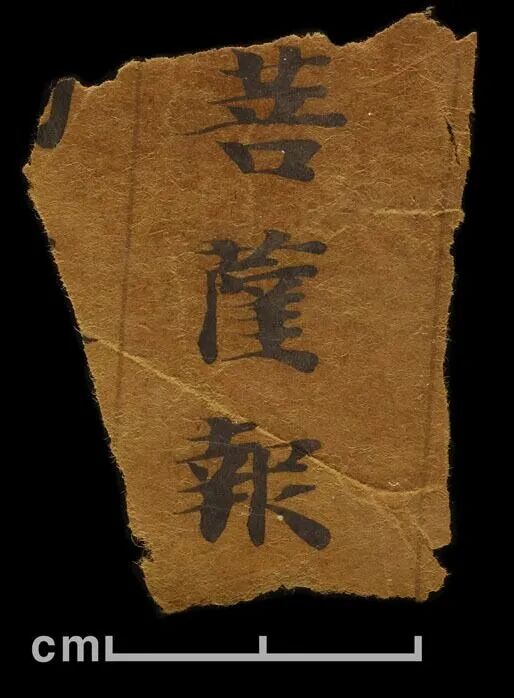 菩薩報
cm